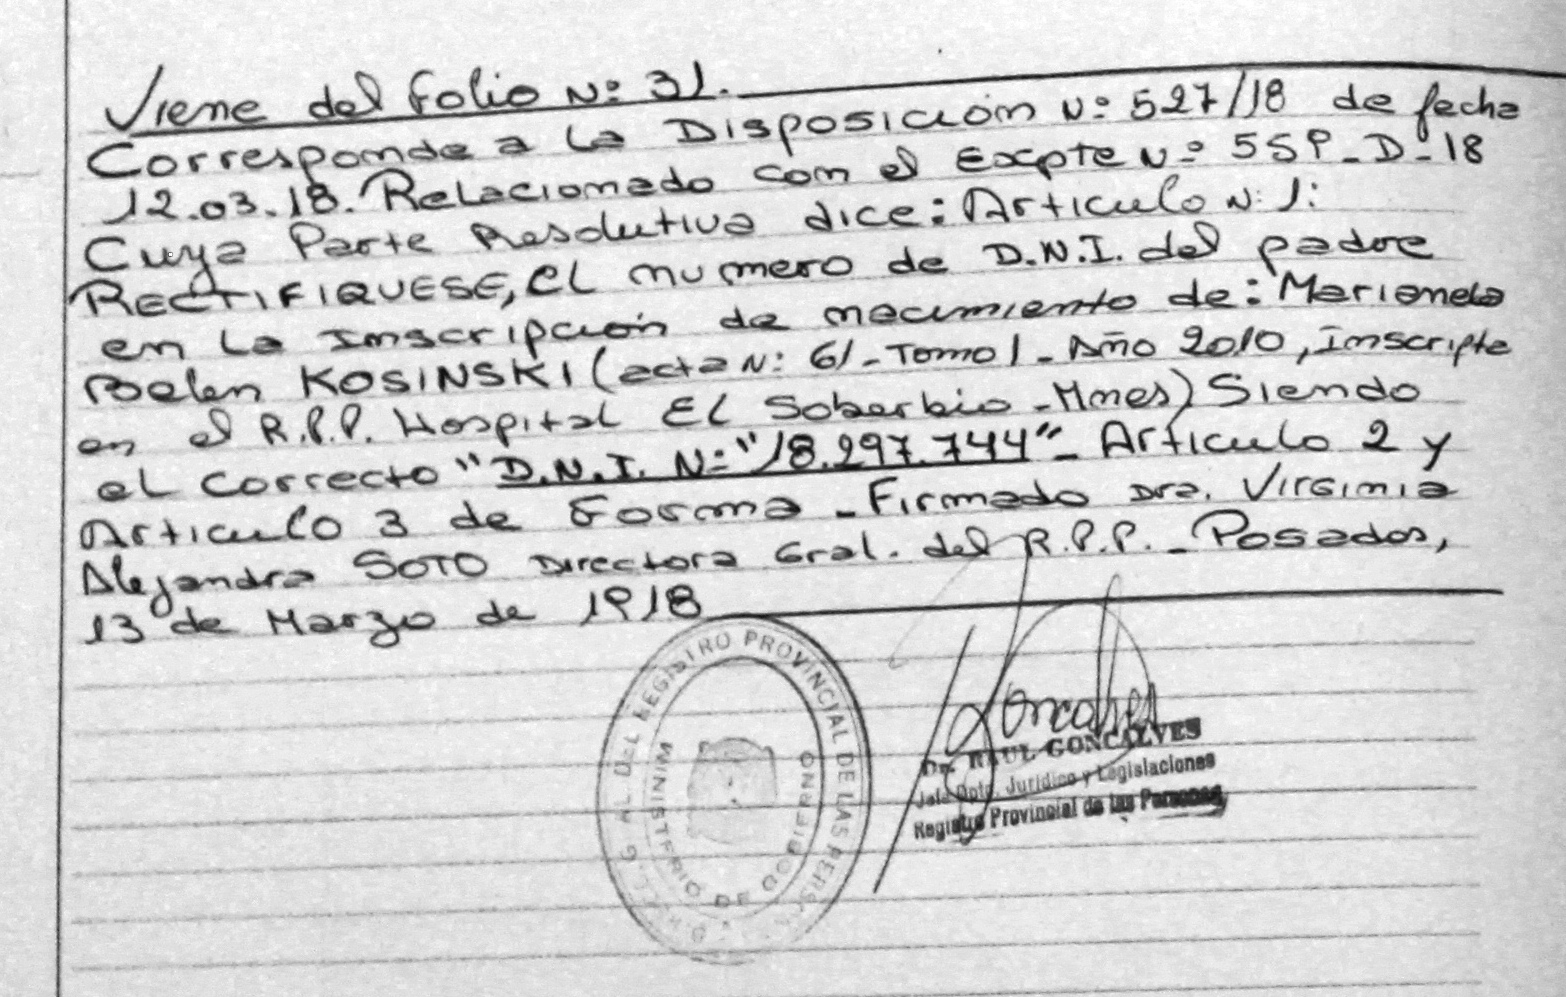 Viene del folio N: 31.
Corresponde a la Disposición N: 527/18 de fecha
12.03.18. Relacionado con el Expte N: 559-D-18
Cuya Parte Resolutiva dice: Articulo N: 1:
RECTIFIQUESE, el numero de D.N.I. del padre
en la Inscripción de nacimiento de: Marianela
Belen KOSINSKI (acta N: 61-Tomo 1-Año 2010, Inscripta
en el R.P.P. Hospital El Soberbio-Mnes) Siendo
el correcto "D.N.I. N: "18.297.744"- Articulo 2 y
Articulo 3 de Forma - Firmado Dra. Virginia
Alejandra SOTO Directora Gral. del R.P.P. - Posadas,
13 de Marzo de 1918
REGISTRO PROVINCIAL DE LAS PERSON
MINISTERIO DE GOBIERNO
Goncalves
Dr. RAUL GONCALVES
Jefe Dpto. Jurídico y Legislaciones
Registro Provincial de las Personas